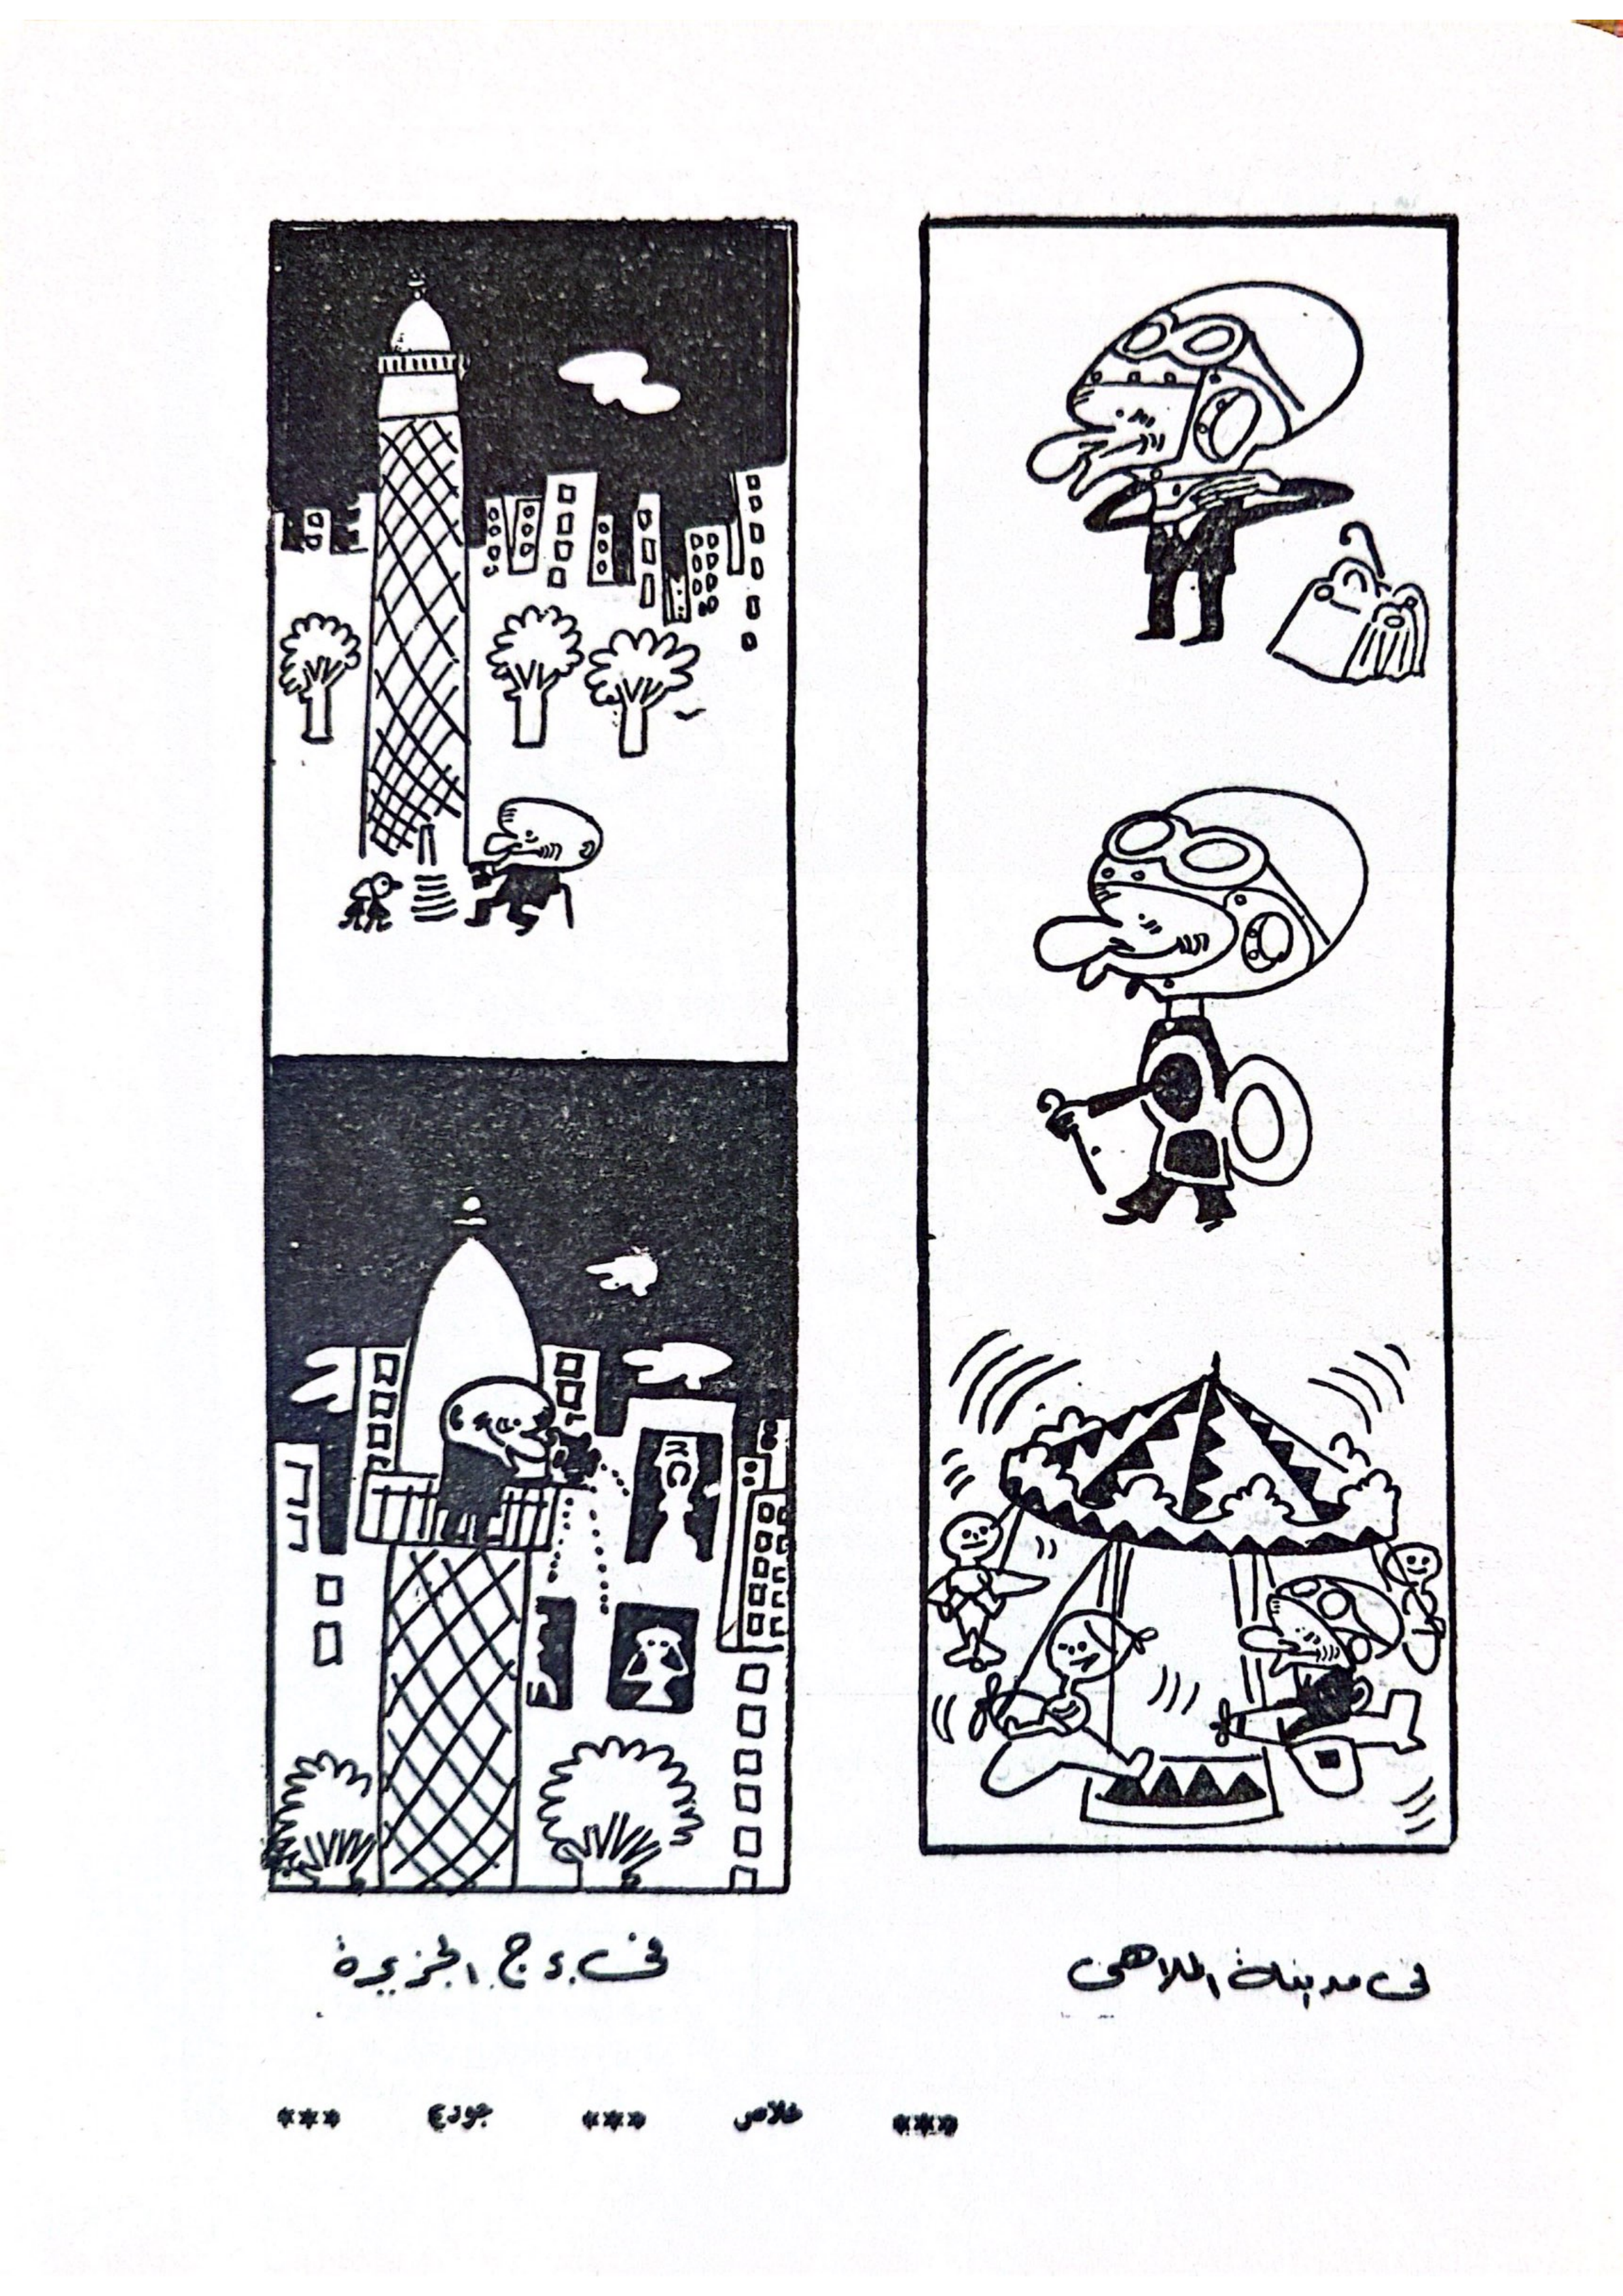 فى مدينة الملاهى
فى برج الجزيرة
*** خلاص *** جودع ***